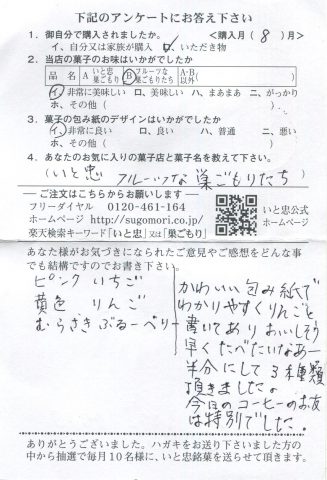 下記のアンケートにお答え下さい
1．御自分で購入されましたか。 <購入月( 8 )月>
イ、自分又は家族が購入 ロ、いただき物
2．当店の菓子のお味はいかがでしたか
品名 A いと忠巣ごもり B フルーツな巣ごもりたち A・B以外( )
イ、非常に美味しい ロ、美味しい ハ、まあまあ ニ、がっかり
ホ、その他( )
3．菓子の包み紙のデザインはいかがでしたか
イ、非常に良い ロ、良い ハ、普通 ニ、悪い
ホ、その他( )
4．あなたのお気に入りの菓子店と菓子名を教えて下さい。
(いと忠 フルーツな巣ごもりたち)
―ご注文はこちらからお願いします―
フリーダイヤル 0120-461-164
ホームページ http://sugomori.co.jp/
楽天検索キーワード「いと忠」又は「巣ごもり」
いと忠公式
ホームページ
あなた様がお気づきになられたご意見やご感想をどんな事
でも結構ですのでお書き下さい。
ピンク いちご
黄色 りんご
むらさき ぶるーべリー
かわいい包み紙で
わかりやすくりんごと
書いてあり おいしそう
早くたべたいなあー
半分にして3種類
頂きました。
今日のコーヒーのお友
は特別でした!
ありがとうございました。ハガキをお送り下さいました方の
中から抽選で毎月10名様に、いと忠銘菓を送らせて頂きます。